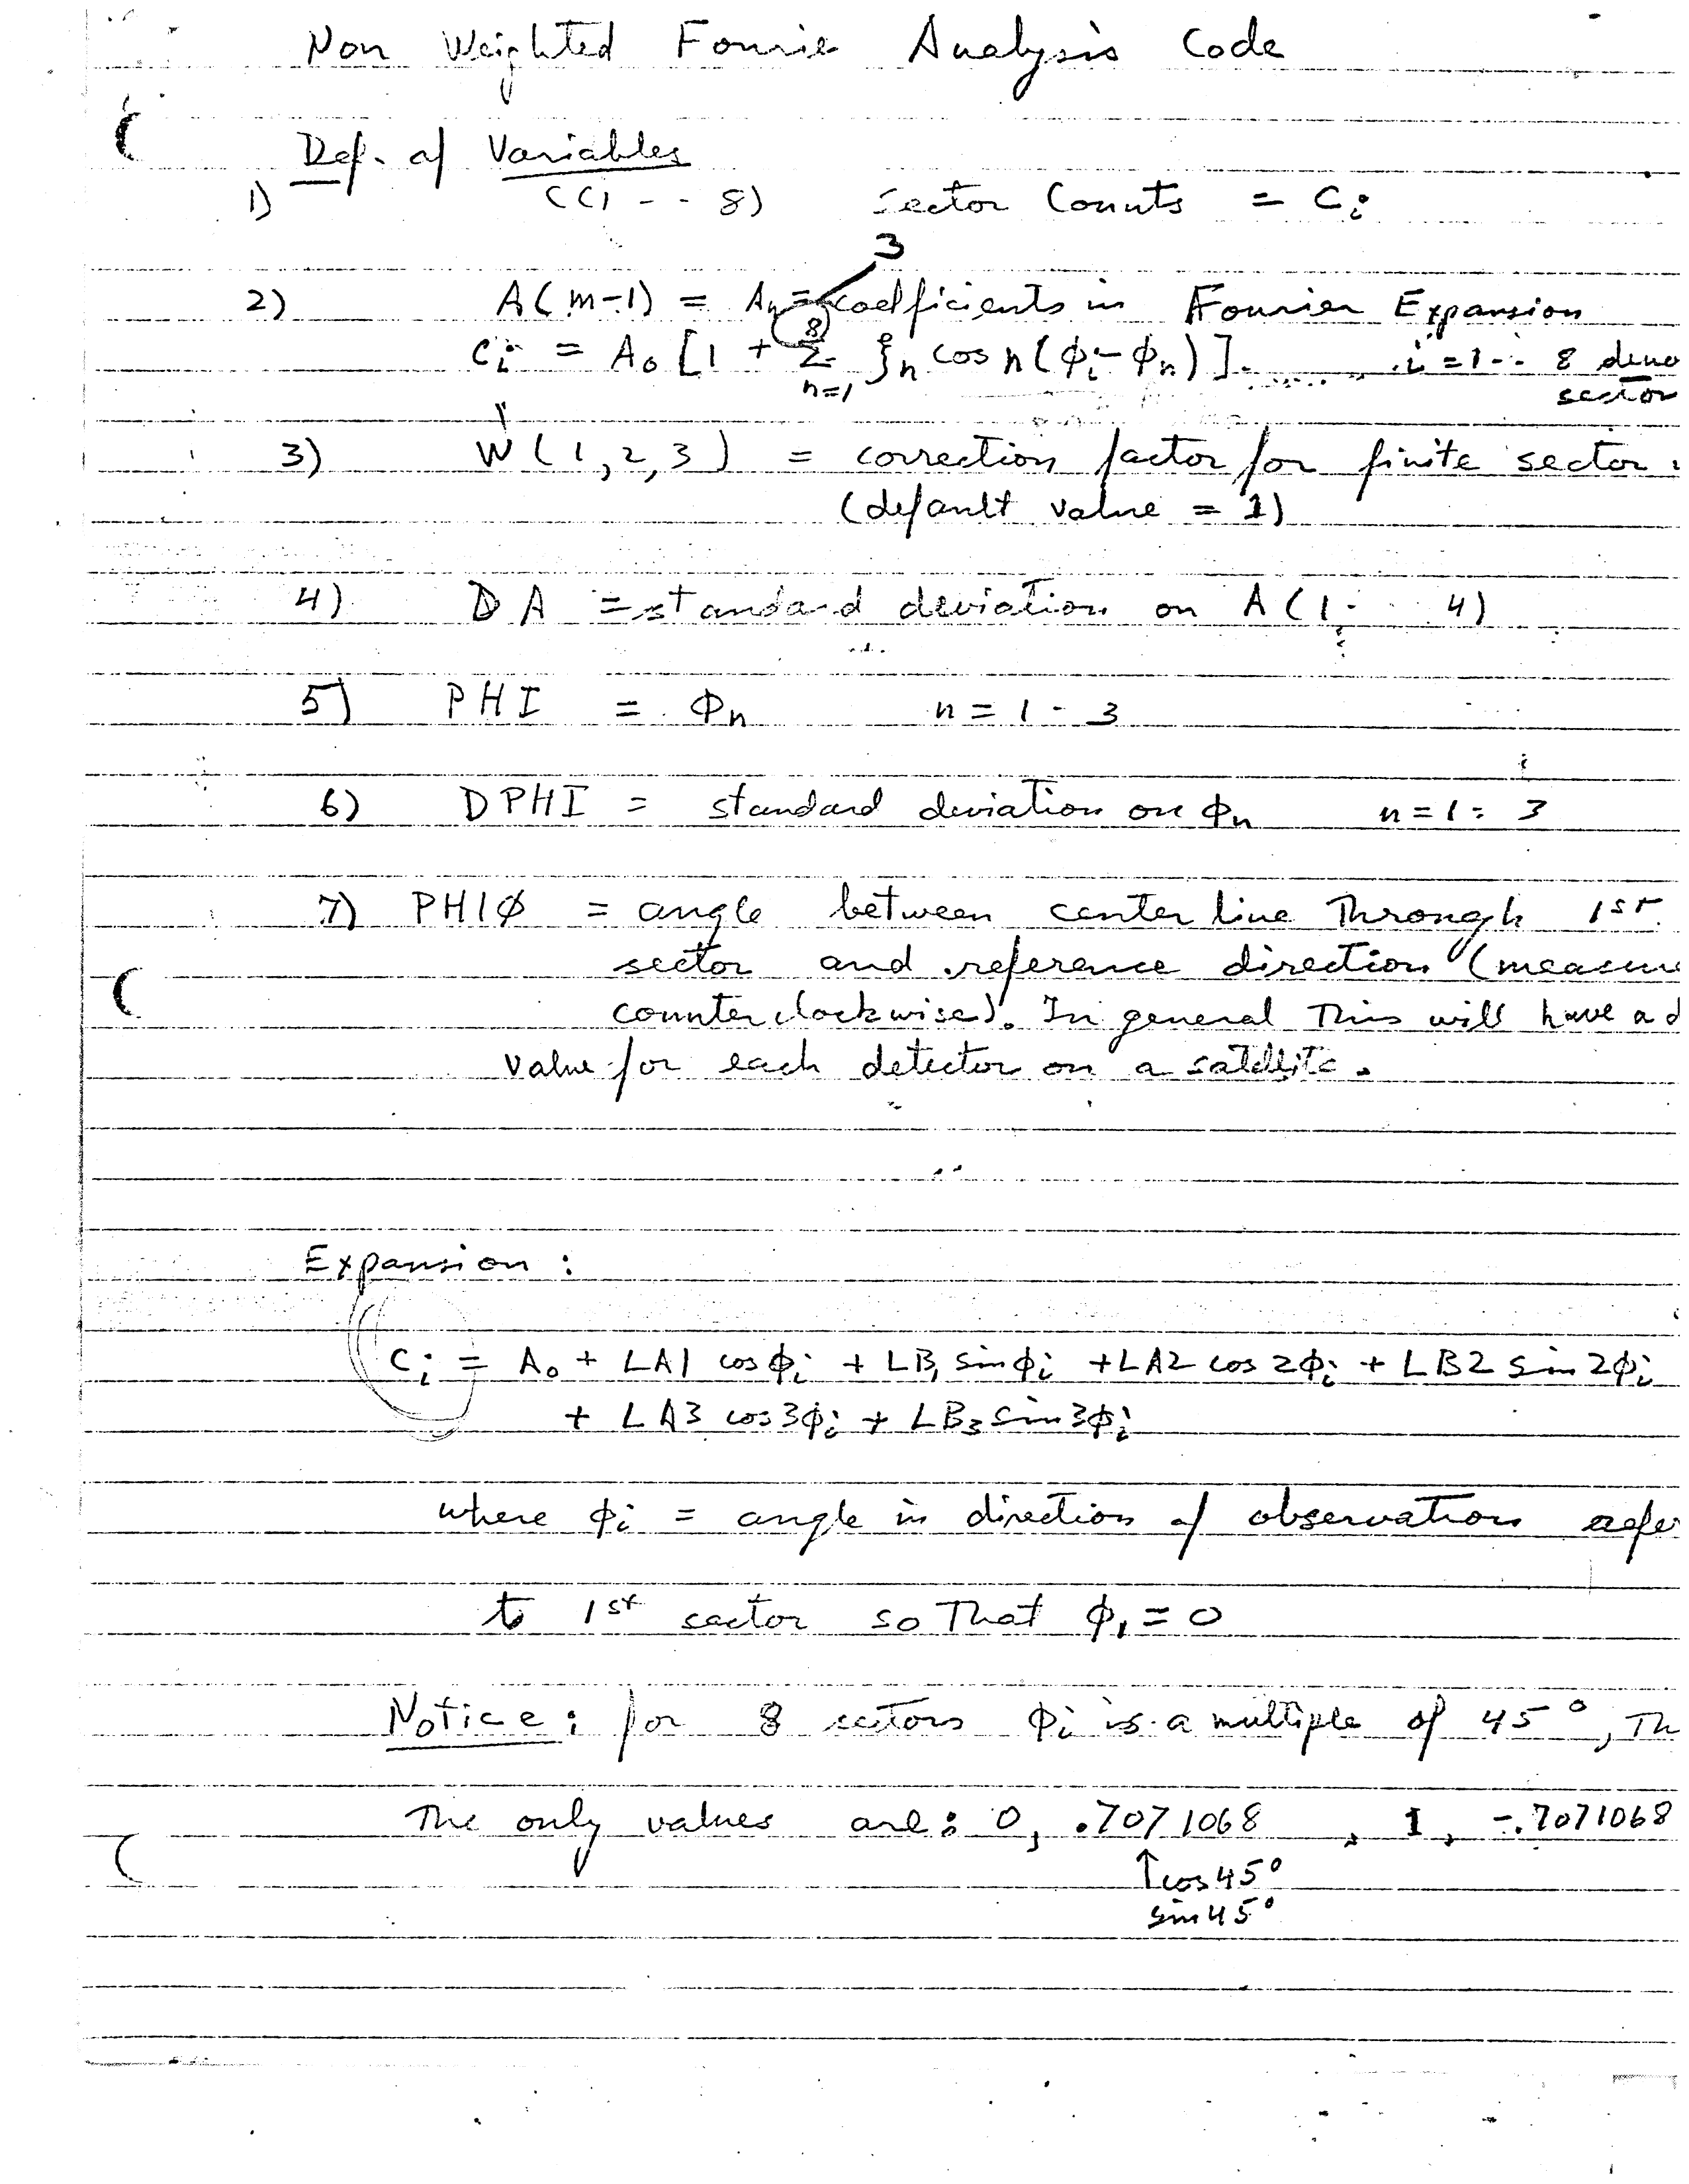 Non Weighted Fourier Analysis Code
Def. of Variables
1) C(1 - - 8) Sector Counts = Ci
3
2) A(m-1) = An = coefficients in Fourier Expansion
Ci = A0 [1 + 8 Σ n=1 ξn cos n(ϕi - ϕn)]. i = 1 - - 8
sector
3) W(1,2,3) = correction factor for finite sector
(default value = 1)
4) DA = standard deviation on A(1 - 4)
5) PHI = Φn n = 1 - 3
6) DPHI = standard deviation on Φn n = 1 - 3
7) PHIØ = angle between center line through 1st
sector and reference direction (measure
counterclockwise). In general this will have a d
value for each detector on a satellite.
Expansion:
Ci = A0 + LA1 cos ϕi + LB1 sin ϕi + LA2 cos 2ϕi + LB2 sin 2ϕi
+ LA3 cos 3ϕi + LB3 sin 3ϕi
where ϕi = angle in direction of observation refer
to 1st sector so that ϕ1 = 0
Notice: for 8 sectors ϕi is a multiple of 45°, Th
The only values are: 0, .7071068, 1, -.7071068
↑ cos 45°
sin 45°